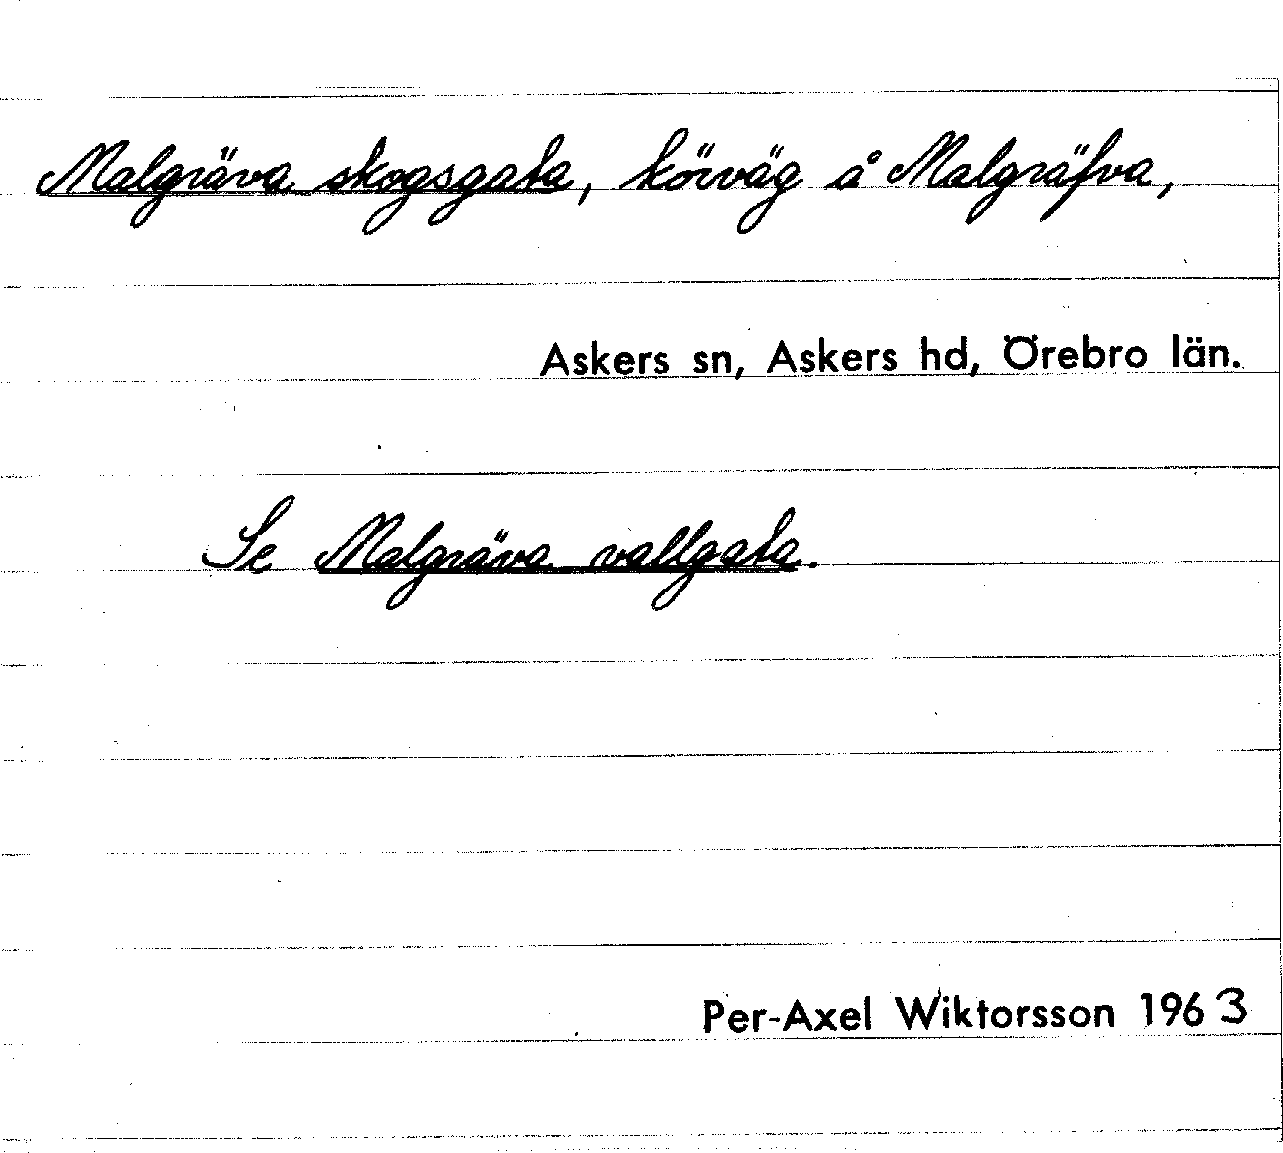 Malgräva skogsgata, körväg å Malgräfva,
Askers sn, Askers hd, Örebro län.
Se Malgräva vallgata.
Per-Axel Wiktorsson 1963